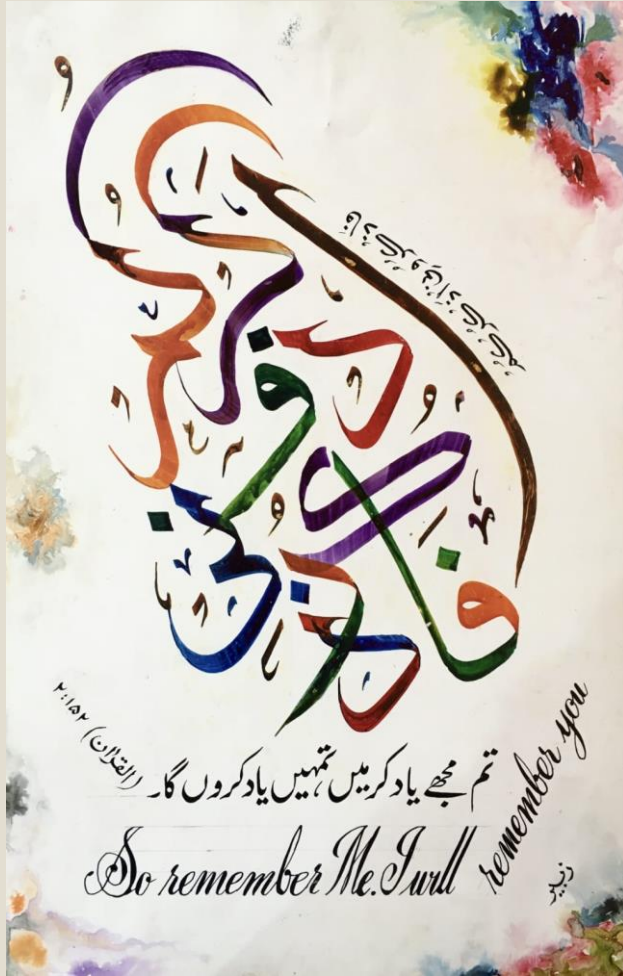 فَاذْكُرُونِي أَذْكُرْكُمْ
فَاذْكُرُونِي أَذْكُرْكُمْ
تم مجھے یاد کر میں تمہیں یاد کروں گا۔ (القرآن) ۲:۱۵۲
So remember Me. I will remember you
زبیر